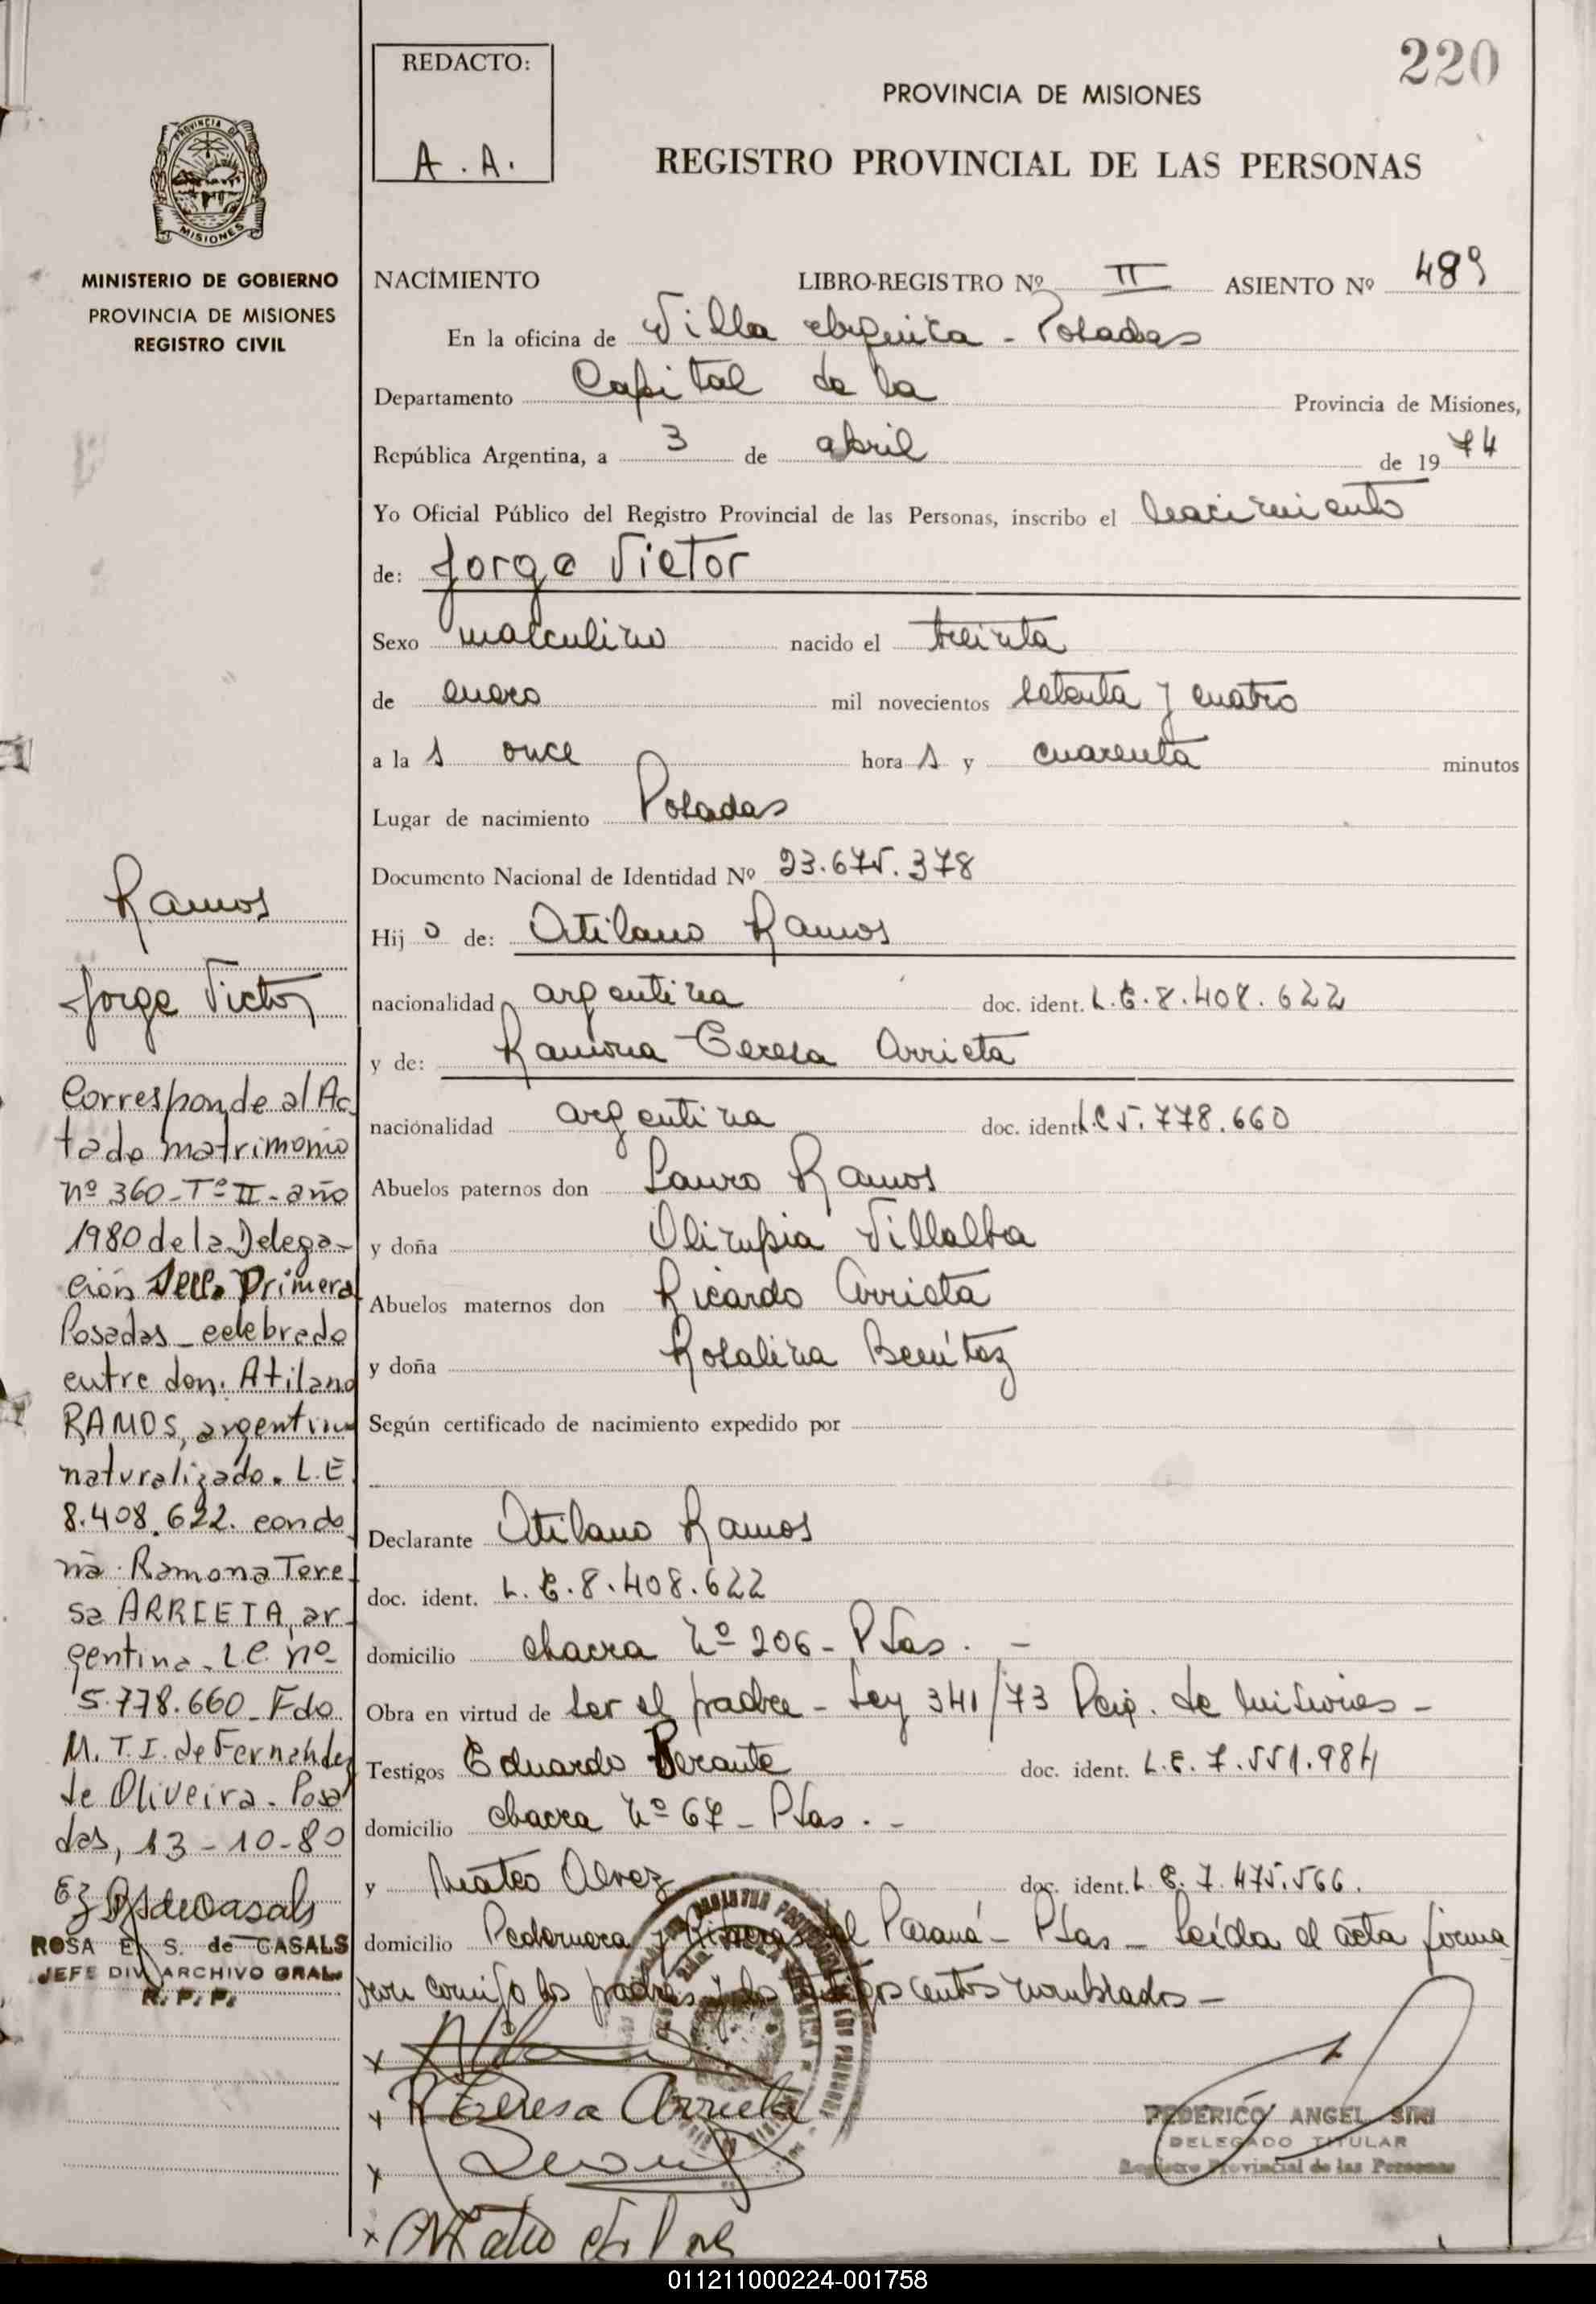 220
REDACTO:
A. A.
PROVINCIA DE MISIONES
REGISTRO PROVINCIAL DE LAS PERSONAS
PROVINCIA DE
MISIONES
MINISTERIO DE GOBIERNO
PROVINCIA DE MISIONES
REGISTRO CIVIL
NACIMIENTO LIBRO-REGISTRO Nº II ASIENTO Nº 489
En la oficina de Villa Urquiza - Posadas
Departamento Capital de la Provincia de Misiones,
República Argentina, a 3 de abril de 1974
Yo Oficial Público del Registro Provincial de las Personas, inscribo el nacimiento
de: Jorge Victor
Sexo masculino nacido el treinta
de enero mil novecientos setenta y cuatro
a la s once hora s y cuarenta minutos
Lugar de nacimiento Posadas
Documento Nacional de Identidad Nº 23.675.378
Hij o de: Atilano Ramos
nacionalidad argentina doc. ident. L.E.8.408.622
y de: Ramona Teresa Arrieta
nacionalidad argentina doc. ident. L.C 5.778.660
Abuelos paternos don Lauro Ramos
y doña Olimpia Villalba
Abuelos maternos don Ricardo Arrieta
y doña Rosalina Benítez
Según certificado de nacimiento expedido por
Declarante Atilano Ramos
doc. ident. L.E.8.408.622
domicilio chacra Nº 206 - Pdas. -
Obra en virtud de ser el padre - Ley 341/73 Pcia. de Misiones -
Testigos Eduardo doc. ident. L.E.7.551.984
domicilio chacra Nº 67 - Pdas. -
y Mateo Alvez doc. ident. L.E.7.475.566.
domicilio Pedernera y Riberas del Paraná - Pdas - Leída el acta firma
ron conmigo los padres y los testigos antes nombrados -
x
x R Teresa Arrieta
x
x
FEDERICO ANGEL SIRI
DELEGADO TITULAR
Registro Provincial de las Personas
Ramos
Jorge Victor
Corresponde al Ac
ta de matrimonio
nº 360 - Tº II - año
1980 de la Delega-
ción Secc. Primera
Posadas - celebrado
entre don. Atilano
RAMOS, argentino
naturalizado. L.E.
8.408.622. con do
ña Ramona Tere
sa ARRIETA, ar
gentina. L.C. nº
5.778.660 - Fdo
M. T. I. de Fernández
de Oliveira - Posa
das, 13 - 10 - 80
ROSA E. S. de CASALS
JEFE DIV. ARCHIVO GRAL.
R. P. P.
011211000224-001758